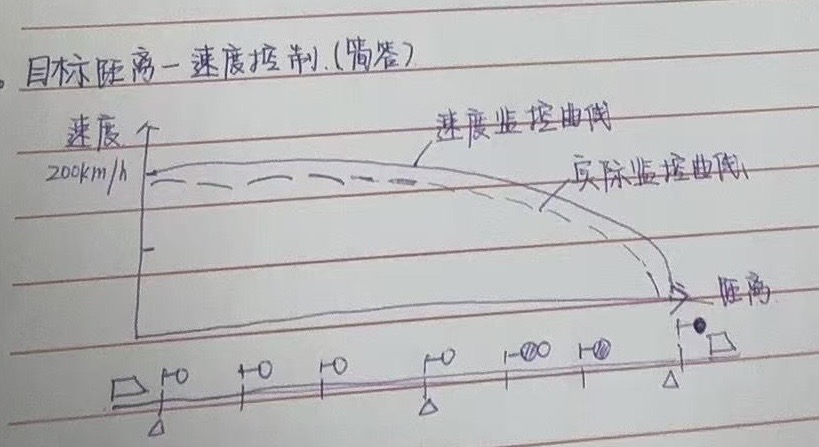 目标距离-速度控制.(简答)
速度
速度监控曲线
200km/h
实际监控曲线
距离